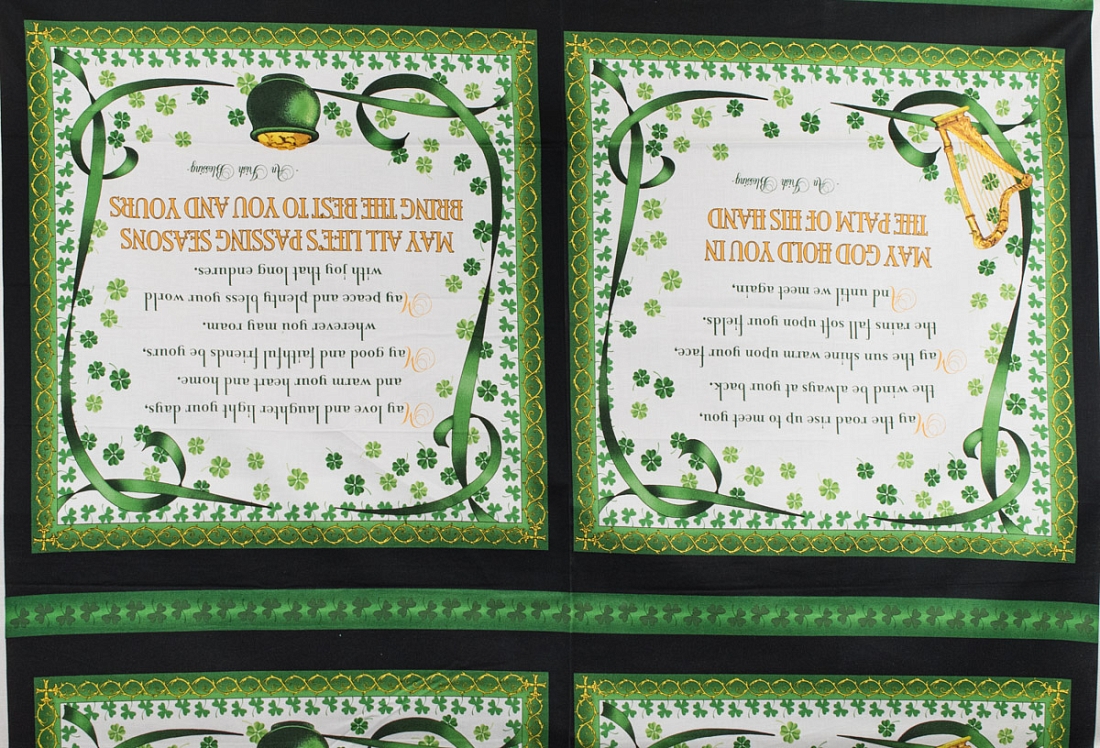 May the road rise up to meet you,
the wind be always at your back.
May the sun shine warm upon your face,
the rains fall soft upon your fields.
And until we meet again,
MAY GOD HOLD YOU IN
THE PALM OF HIS HAND
- An Irish Blessing -
May love and laughter light your days,
and warm your heart and home.
May good and faithful friends be yours,
wherever you may roam.
May peace and plenty bless your world
with joy that long endures.
MAY ALL LIFE'S PASSING SEASONS
BRING THE BEST TO YOU AND YOURS
- An Irish Blessing -